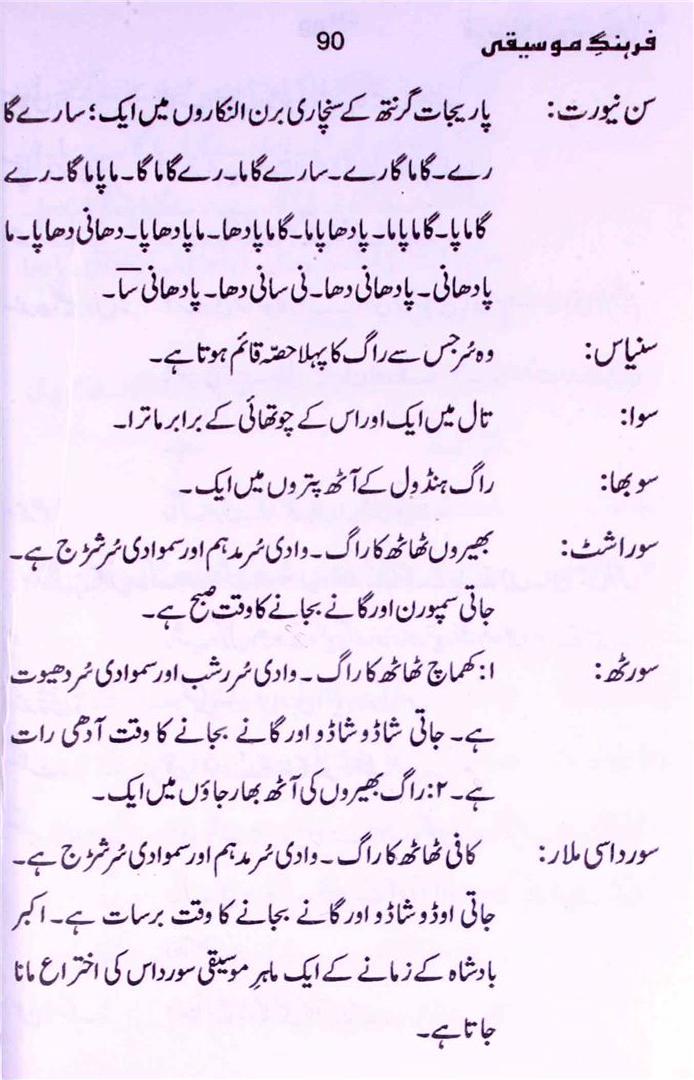 فرہنگِ موسیقی 90
سن نیورت: پاریجات گرنتھ کے سنچاری برن النکاروں میں ایک؛ سارے گا
رے۔گاماگارے۔سارےگاما۔رےگاماگا۔ماپاماگا۔رے
گاماپا۔گاماپاما۔پادھاپاپا۔گاماپادھا۔ماپادھاپا۔دھانی دھاپا۔ما
پادھانی۔پادھانی دھا۔نی سانی دھا۔پادھانی سا۔
سنیاس: وہ سُر جس سے راگ کا پہلا حصّہ قائم ہوتا ہے۔
سوا: تال میں ایک اور اس کے چوتھائی کے برابر ماترا۔
سوبھا: راگ ہنڈول کے آٹھ پتروں میں ایک۔
سوراشٹ: بھیروں ٹھاٹھ کا راگ۔ وادی سُر مدہم اور سموادی سُر شڑج ہے۔
جاتی سمپورن اور گانے بجانے کا وقت صبح ہے۔
سورٹھ: ۱: کھماچ ٹھاٹھ کا راگ۔ وادی سُر رشب اور سموادی سُر دھیوت
ہے۔ جاتی شاڈو شاڈو اور گانے بجانے کا وقت آدھی رات
ہے۔ ۲: راگ بھیروں کی آٹھ بھارجاؤں میں ایک۔
سورداسی ملار: کافی ٹھاٹھ کا راگ۔ وادی سُر مدہم اور سموادی سُر شڑج ہے۔
جاتی اوڈو شاڈو اور گانے بجانے کا وقت برسات ہے۔ اکبر
بادشاہ کے زمانے کے ایک ماہرِ موسیقی سورداس کی اختراع مانا
جاتا ہے۔